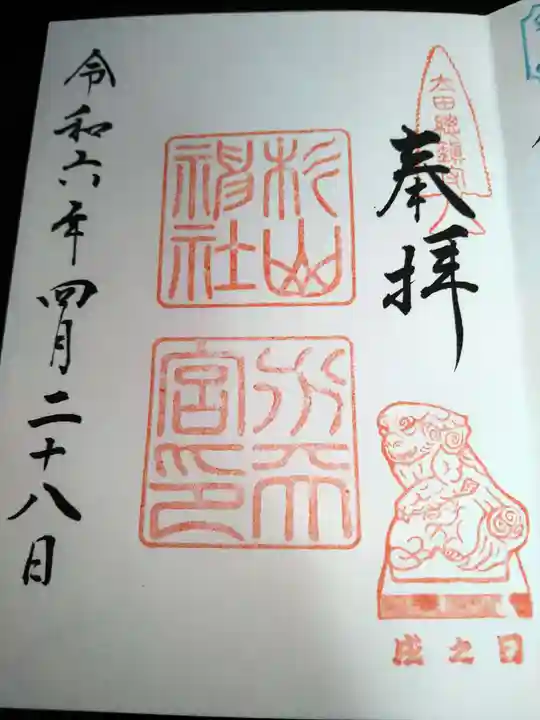 太田總鎮守
奉拝
戌之日
杉山
神社
水天
宮印
令和六年四月二十八日